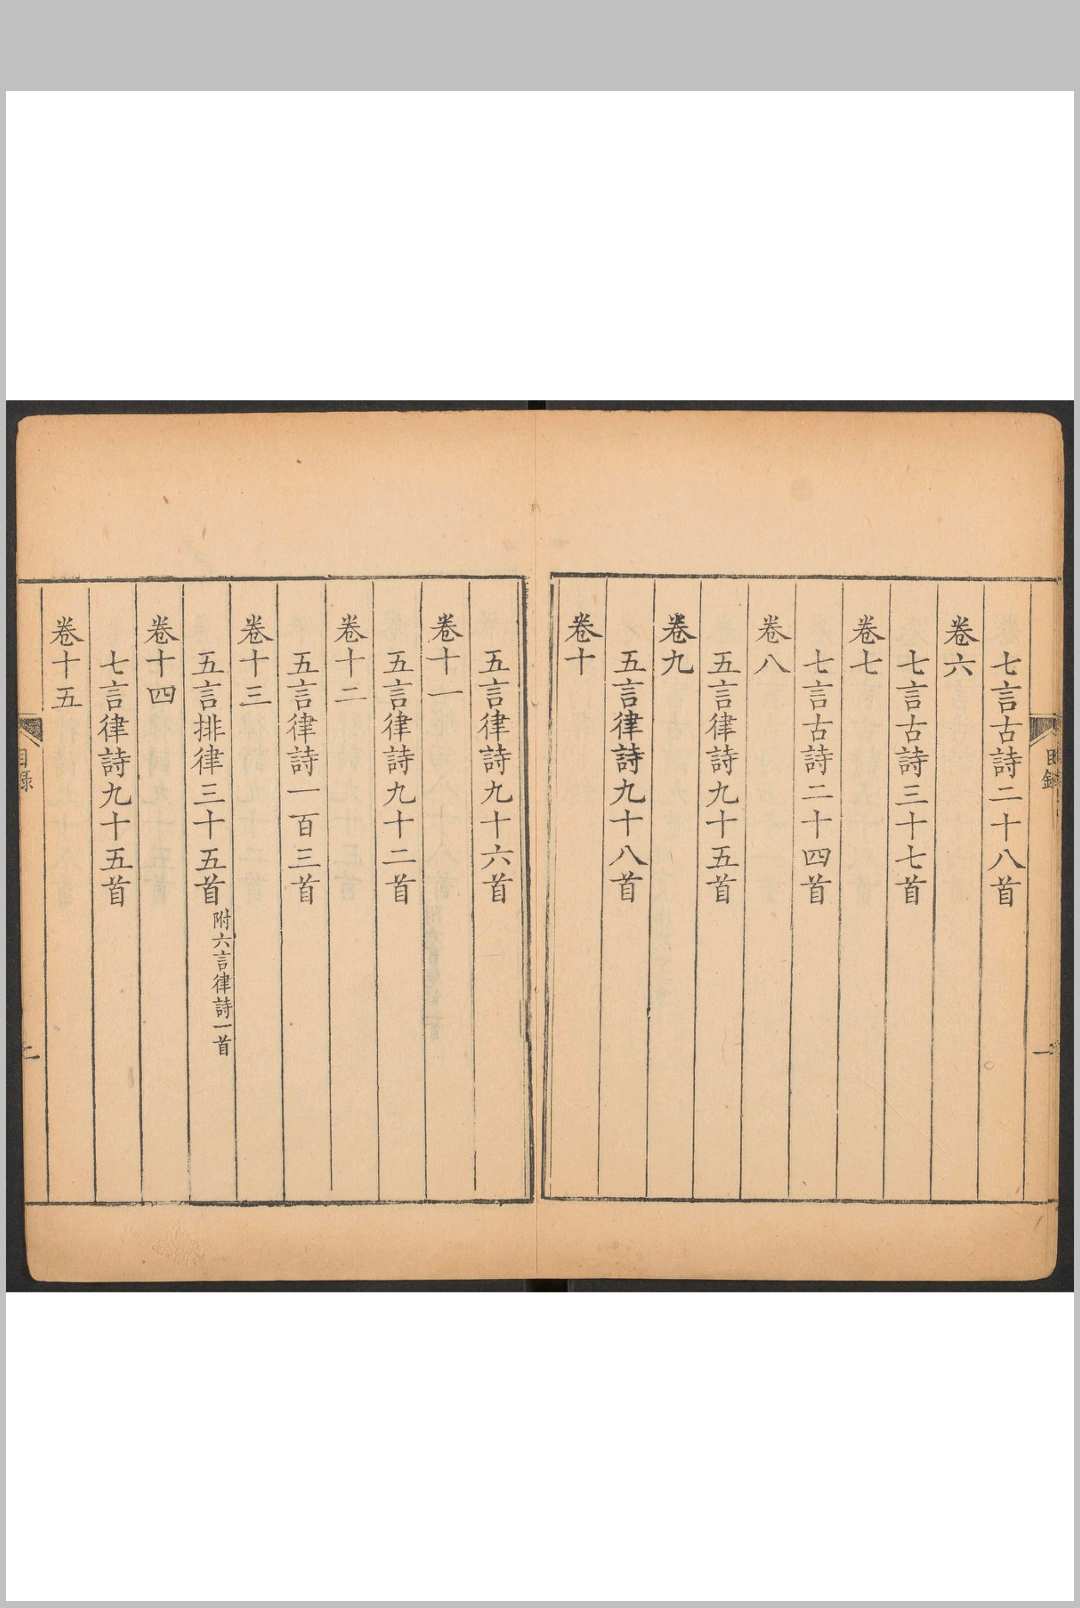 七言古詩二十八首
卷六
七言古詩三十七首
卷七
七言古詩二十四首
卷八
五言律詩九十五首
卷九
五言律詩九十八首
卷十
目錄
一
五言律詩九十六首
卷十一
五言律詩九十二首
卷十二
五言律詩一百三首
卷十三
五言排律三十五首附六言律詩一首
卷十四
七言律詩九十五首
卷十五
目錄
二